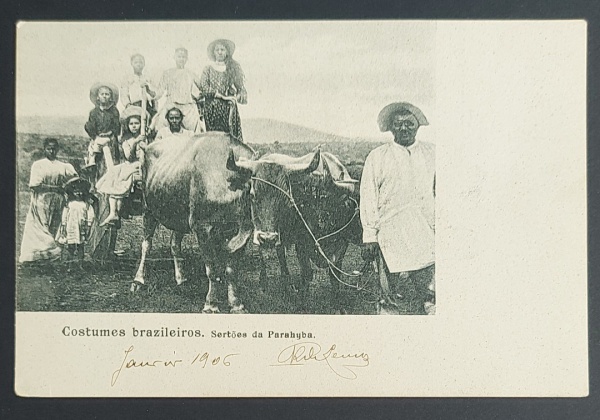 Costumes brazileiros. Sertões da Parahyba.
Janvir 1906